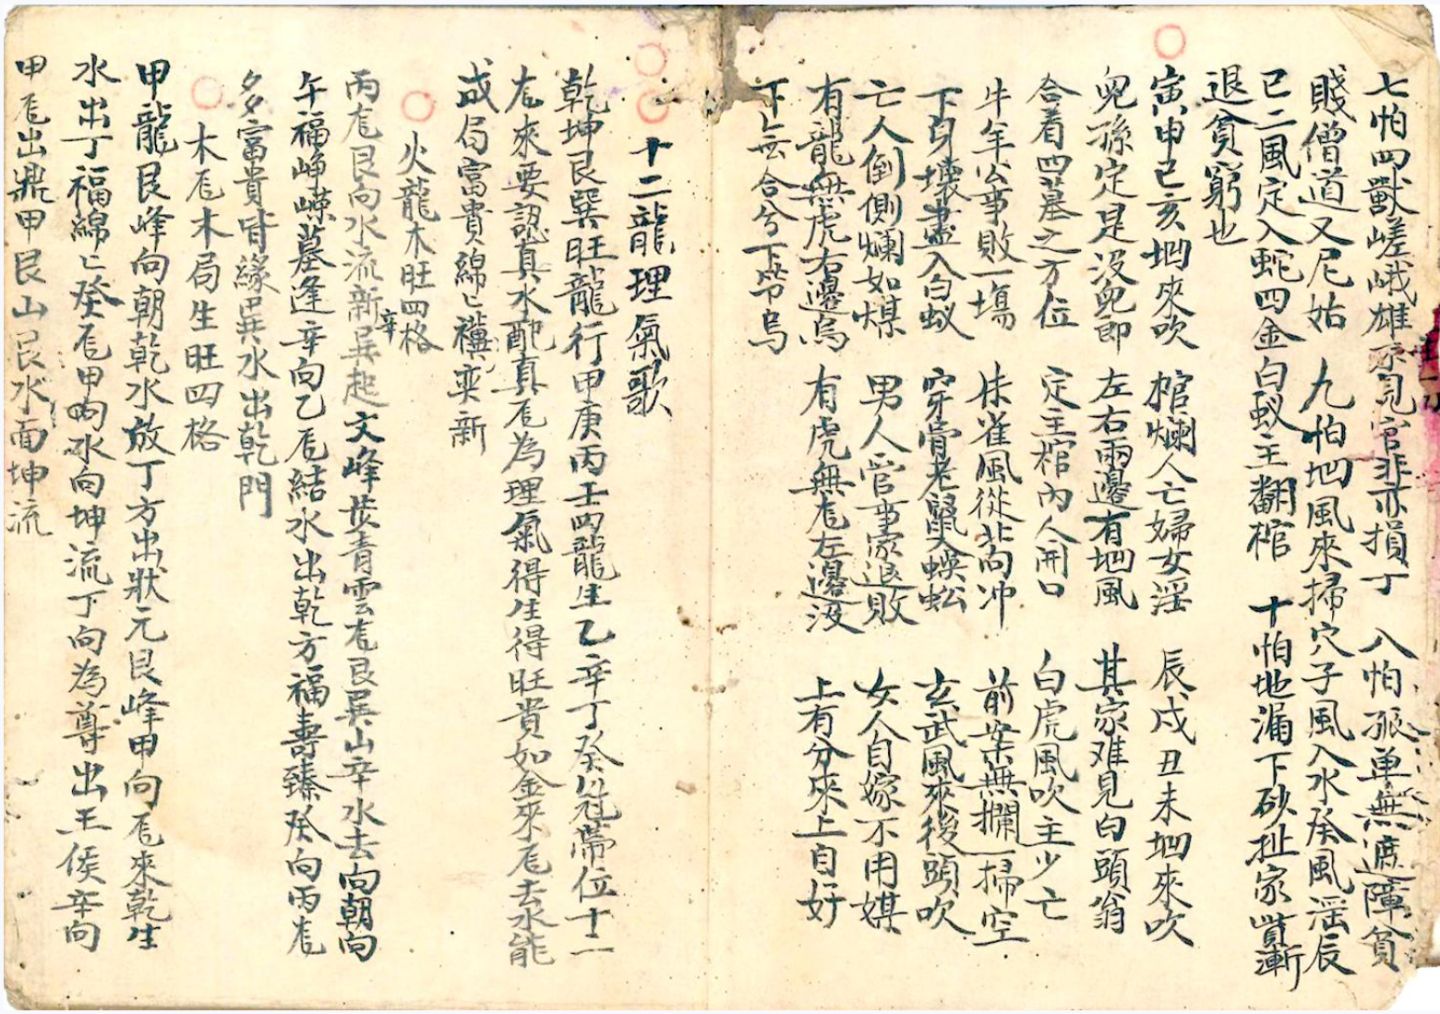 七怕四獸嵯峨雄 見官非亦損丁 八怕孤單無遮障貧
賤僧道又尼姑 九怕凹風來掃穴子風入水癸風淫辰
巳二風定入蛇四金白蚁主翻棺 十怕地漏下砂扯家貲漸
退貧窮也
寅申巳亥凹來吹 棺爛人亡婦女淫 辰戍丑未凹來吹
兒孫定是没兒郎 左右兩邊有凹風 其家难見白頭翁
合着四墓之方位 定主棺內人開口 白虎風吹主少亡
牛羊公事敗一塲 朱雀風從非向冲 前案無攔一掃空
下身壞盡入白蚁 穿骨老鼠又蜈蚣 玄武風來後頭吹
亡人倒側爛如煤 男人官事家退敗 女人自嫁不用媒
有龍無虎右邊烏 有虎無龙左邊没 上有分來上自好
下無合兮下不烏
十二龍理氣歌
乾坤艮巽旺龍行甲庚丙壬四龍生乙辛丁癸冠帶位十一
龙來要認真水配真龙為理氣得生得旺貴如金來龙去水能
成局富貴綿〻襀奕新
火龍木旺四格
丙龙艮向水流新辛巽起文峰步青雲龙艮巽山辛水去向朝向
午福崢嶸墓逢辛向乙龙結水出乾方福壽臻癸向丙龙
多富貴皆緣巽水出乾門
木龙木局生旺四格
甲龍艮峰向朝乾水放丁方出狀元艮峰甲向龙來乾生
水出丁福綿〻癸龙甲向水向坤流丁向為尊出王侯辛向
甲龙出鼎甲艮山艮水面坤流